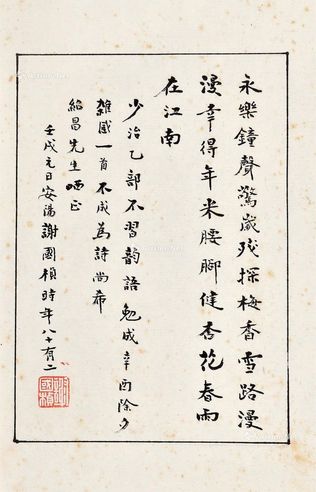 永樂鐘聲驚歲殘探梅香雪路漫
漫幸得年來腰脚健杏花春雨
在江南
少治乙部不習韵語勉成辛酉除夕
雜感一首不成爲詩尚希
紹昌先生哂正
壬戌元日安陽謝國楨時年八十有二